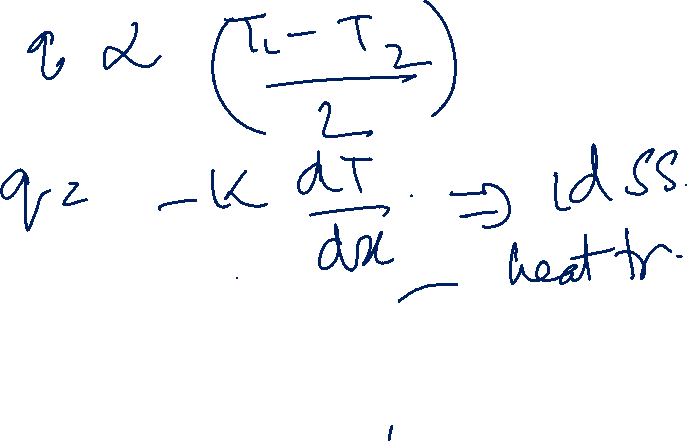 q ∝ (T₁ - T₂ / 2)
q = -K dT/dx ⇒ 1d SS.
heat tr.